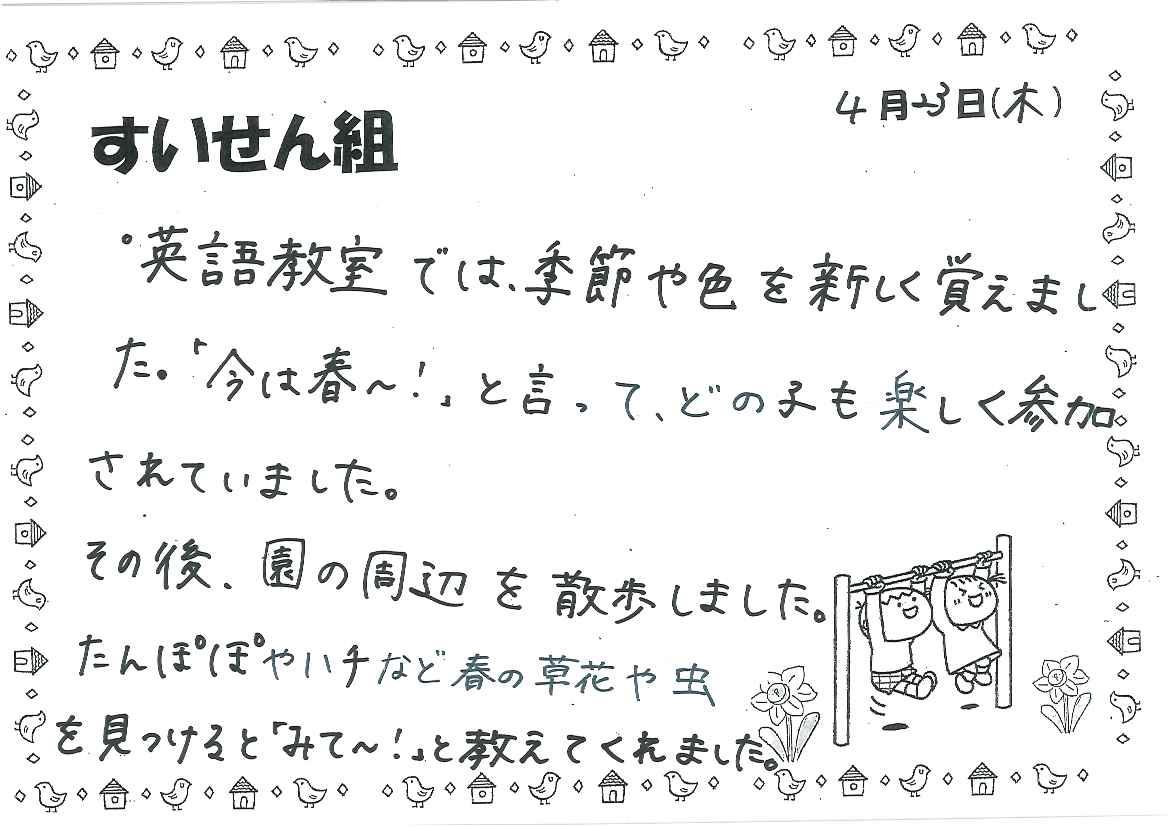 4月23日(木)
すいせん組
°英語教室では、季節や色を新しく覚えまし
た。「今は春～!」と言って、どの子も楽しく参加
されていました。
その後、園の周辺を散歩しました。
たんぽぽやハチなど春の草花や虫
を見つけると「みて～!」と教えてくれました。